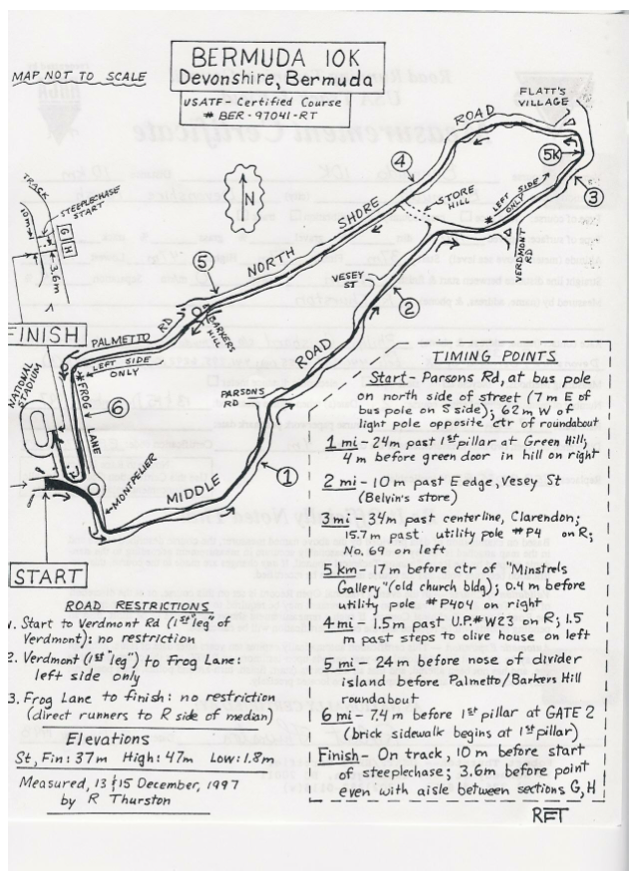 BERMUDA 10K
Devonshire, Bermuda
USATF-Certified Course
# BER-97041-RT
MAP NOT TO SCALE
FLATT'S
VILLAGE
ROAD
5K
4
3
STORE
HILL
* LEFT SIDE
ONLY
VERDMONT
RD
SHORE
NORTH
N
TRACK
STEEPLECHASE
START
10m
G
H
3.6m
5
VESEY
ST
2
FINISH
PALMETTO RD
BARKERS
HILL
* LEFT SIDE
ONLY
ROAD
NATIONAL
STADIUM
FROG
LANE
6
PARSONS
RD
MONTPELIER
MIDDLE
1
START
TIMING POINTS
Start- Parsons Rd, at bus pole
on north side of street (7m E of
bus pole on S side); 62m W of
light pole opposite ctr of roundabout
1 mi- 24m past 1st pillar at Green Hill;
4m before green door in hill on right
2 mi- 10m past E edge, Vesey St
(Belvin's store)
3 mi- 34m past centerline, Clarendon;
15.7m past utility pole #P4 on R;
No. 69 on left
5 km- 17m before ctr of "Minstrels
Gallery" (old church bldg); 0.4m before
utility pole #P404 on right
4 mi- 1.5m past U.P.#W23 on R; 1.5
m past steps to olive house on left
5 mi- 24m before nose of divider
island before Palmetto/Barkers Hill
roundabout
6 mi- 7.4m before 1st pillar at GATE 2
(brick sidewalk begins at 1st pillar)
Finish- On track, 10m before start
of steeplechase; 3.6m before point
even with aisle between sections G,H
RFT
ROAD RESTRICTIONS
1. Start to Verdmont Rd (1st "leg" of
Verdmont): no restriction
2. Verdmont (1st "leg") to Frog Lane:
left side only
3. Frog Lane to finish: no restriction
(direct runners to R side of median)
Elevations
St, Fin: 37m High: 47m Low: 1.8m
Measured, 13 & 15 December, 1997
by R Thurston